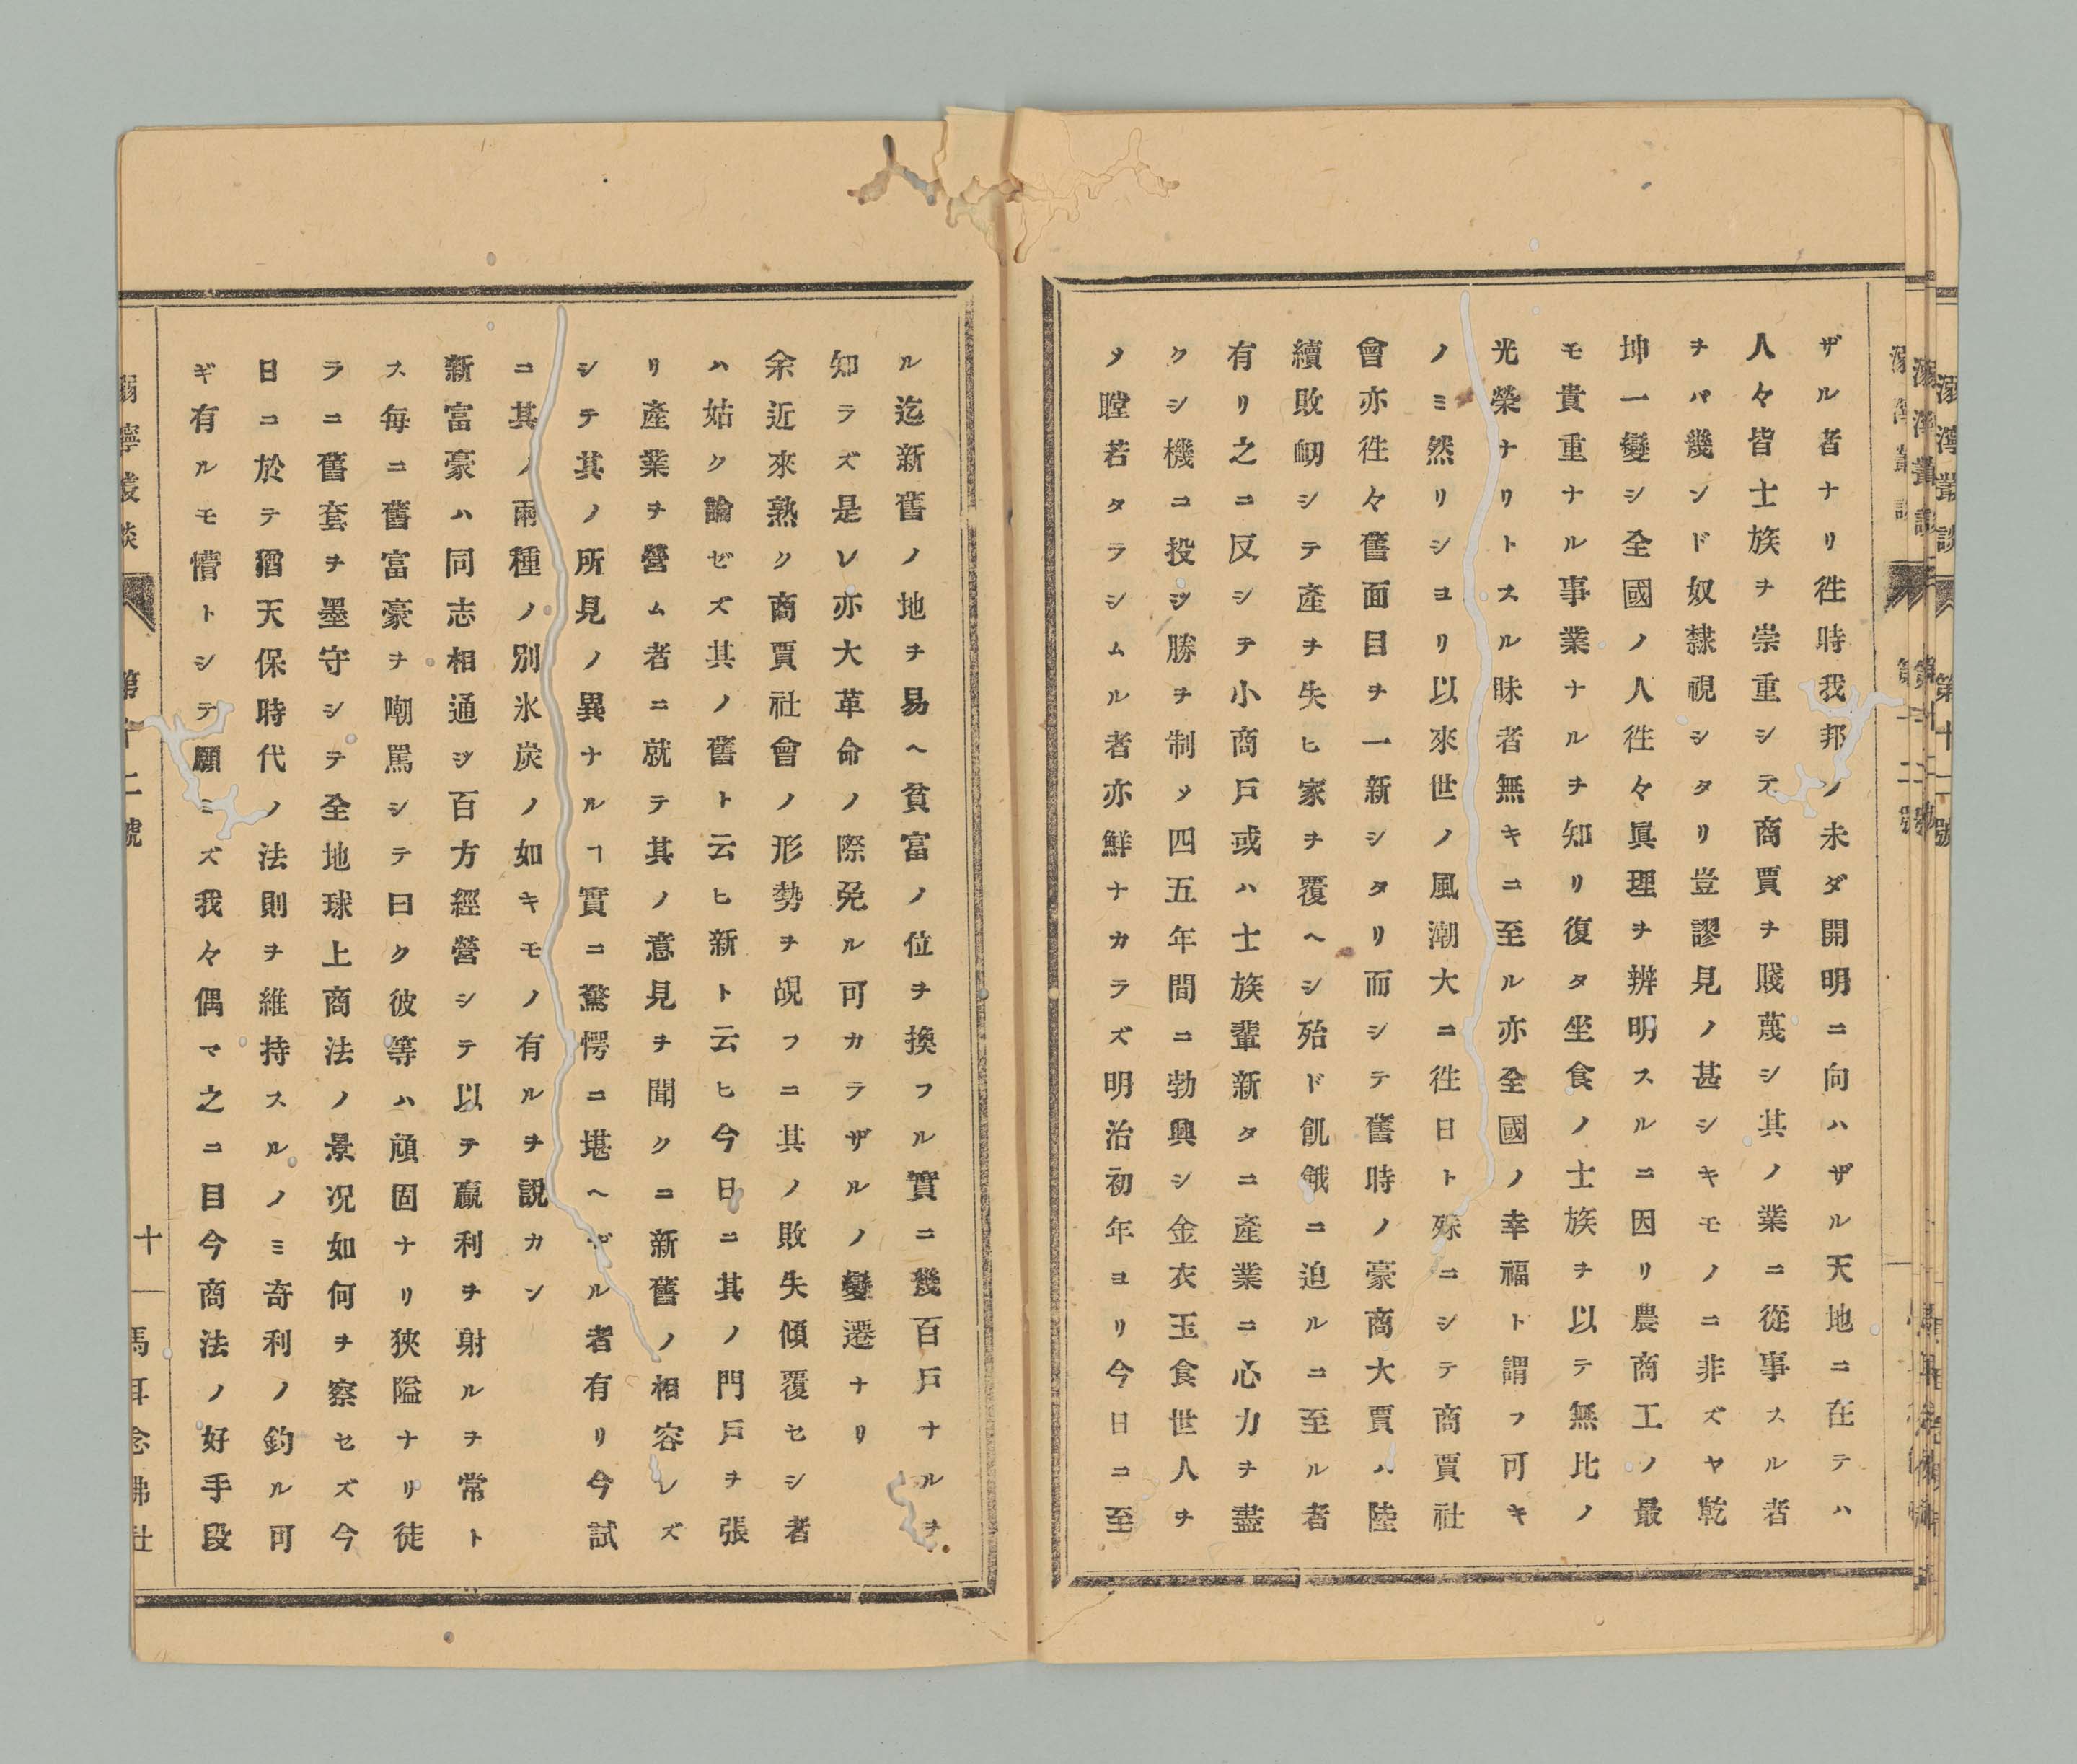 ザル者ナリ徃時我邦ノ未ダ開明ニ向ハザル天地ニ在テハ
人々皆士族ヲ崇重シテ商賈ヲ賤蔑シ其ノ業ニ從事スル者
ヲバ幾ンド奴隸視シタリ豈謬見ノ甚シキモノニ非ズヤ乾
坤一變シ全國ノ人徃々眞理ヲ辨明スルニ因リ農商工ノ最
モ貴重ナル事業ナルヲ知リ復タ坐食ノ士族ヲ以テ無比ノ
光榮ナリトスル昧者無キニ至ル亦全國ノ幸福ト謂フ可キ
ノミ然リシヨリ以來世ノ風潮大ニ徃日ト殊ニシテ商賈社
會亦徃々舊面目ヲ一新シタリ而シテ舊時ノ豪商大賈ハ陸
續敗衂シテ產ヲ失ヒ家ヲ覆ヘシ殆ド飢餓ニ迫ルニ至ル者
有リ之ニ反シテ小商戶或ハ士族輩新タニ產業ニ心力ヲ盡
クシ機ニ投ジ勝ヲ制メ四五年間ニ勃興シ金衣玉食世人ヲ
メ瞠若タラシムル者亦鮮ナカラズ明治初年ヨリ今日ニ至
ル迄新舊ノ地ヲ易ヘ貧富ノ位ヲ換フル實ニ幾百戶ナルヲ
知ラズ是レ亦大革命ノ際免ル可カラザルノ變遷ナリ
余近來熟ク商賈社會ノ形勢ヲ覘フニ其ノ敗失傾覆セシ者
ハ姑ク論ゼズ其ノ舊ト云ヒ新ト云ヒ今日ニ其ノ門戶ヲ張
リ產業ヲ營ム者ニ就テ其ノ意見ヲ聞クニ新舊ノ相容レズ
シテ其ノ所見ノ異ナルヿ實ニ驚愕ニ堪ヘザル者有リ今試
ニ其ノ兩種ノ別氷炭ノ如キモノ有ルヲ說カン
新富豪ハ同志相通ジ百方經營シテ以テ贏利ヲ射ルヲ常ト
ス每ニ舊富豪ヲ嘲罵シテ曰ク彼等ハ頑固ナリ狹隘ナリ徒
ラニ舊套ヲ墨守シテ全地球上商法ノ景况如何ヲ察セズ今
日ニ於テ猶天保時代ノ法則ヲ維持スルノミ奇利ノ釣ル可
ギ有ルモ懵トシテ顧ミズ我々偶マ之ニ目今商法ノ好手段
第十二號
十一